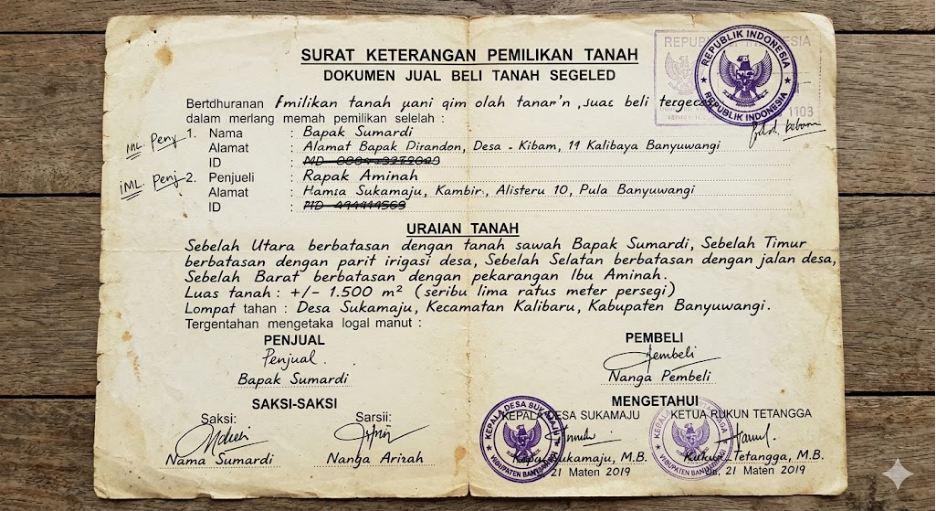 SURAT KETERANGAN PEMILIKAN TANAH
DOKUMEN JUAL BELI TANAH SEGELED
REPUBLIK INDONESIA
REPUBLIK INDONESIA
1103
Bertdhuranan Fmilikan tanah µani qim olah tanar'n ,suac beli
dalam merlang memah pemilikan selelah :
1. Nama : Bapak Sumardi
Alamat : Alamat Bapak Dirandon, Desa - Kibam, 11 Kalibaya Banyuwangi
ID :
2. Penjueli : Rapak Aminah
Alamat : Hamsa Sukamaju, Kambir., Alisteru 10, Pula Banyuwangi
ID :
URAIAN TANAH
Sebelah Utara berbatasan dengan tanah sawah Bapak Sumardi, Sebelah Timur
berbatasan dengan parit irigasi desa, Sebelah Selatan berbatasan dengan jalan desa,
Sebelah Barat berbatasan dengan pekarangan Ibu Aminah.
Luas tanah : +/- 1.500 m² (seribu lima ratus meter persegi)
Lompat tahan : Desa Sukamaju, Kecamatan Kalibaru, Kabupaten Banyuwangi.
Tergentahan mengetaka logal manut :
PENJUAL
Penjual.
Bapak Sumardi
PEMBELI
Nanga Pembeli
SAKSI-SAKSI
Saksi:
Nama Sumardi
Sarsii:
Nanga Arizah
MENGETAHUI
KEPALA DESA SUKAMAJU
Sukamaju, M.B.
21 Maten 2019
KETUA RUKUN TETANGGA
Tetangga, M.B.
21 Maten 2019